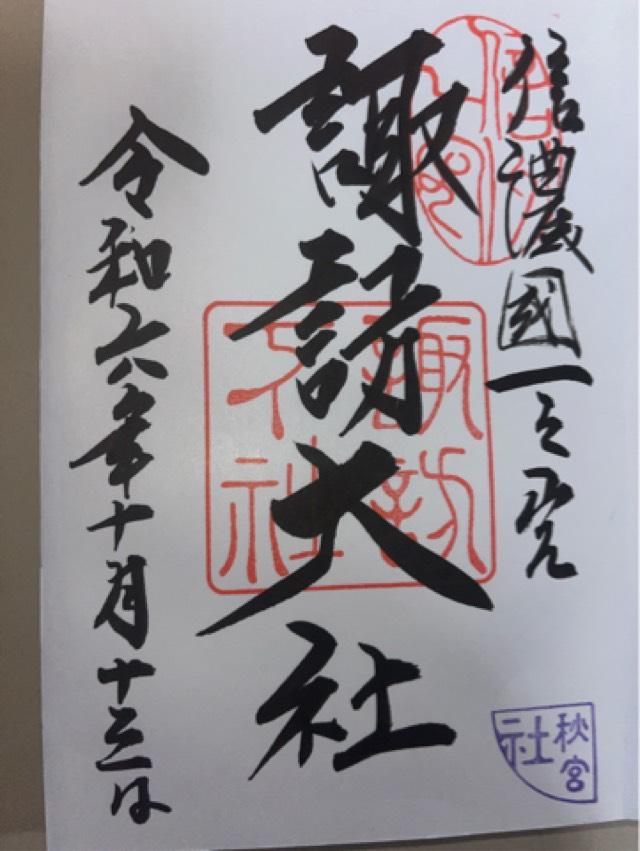 信濃國一之宮
諏訪大社
令和六年十月十三日
諏訪
大社
秋宮
社